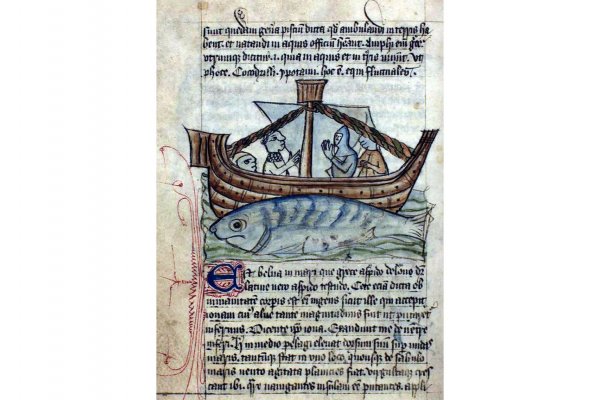 sunt quedam gen̄a pisciū dicta qd̄ ambulandi in terris ha
bent. et natandi in aquis officiū
dicitur .i. quia in aquis et in t̄ris
phoce. Cocodrilli. ypotami. hoc ē. equi fluctuales.
Est belua in mari que grece aspido delone dr̄
latine vero aspido testudo. Cete eciā dicta ob
inmanitatē corpis est eī ingens sicut ille qui accepit
ionam cuiꝰ aluꝰ tante magnitudinis fuit ut putaret
infernus. Dicente ip̄o iona. Exaudiuit me de uentre
inferi. in medio pelagi eleuat dorsum suū undas
maris. tantūque stat in vno loco. quousque de sabulo
maris vento agitata planicies fiat. cres
cant ibi. nauigantes insulam eē putantes. appli